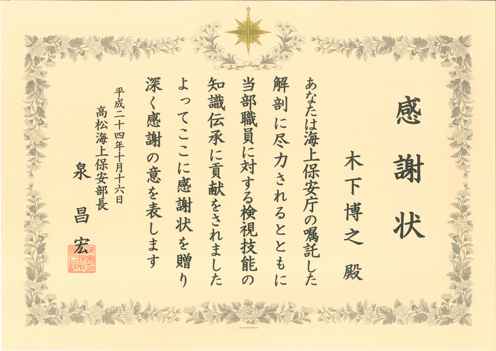 感謝状
木下博之 殿
あなたは海上保安庁の嘱託した
解剖に尽力されるとともに
当部職員に対する検視技能の
知識伝承に貢献をされました
よってここに感謝状を贈り
深く感謝の意を表します
平成二十四年十月十六日
高松海上保安部長
泉 昌宏